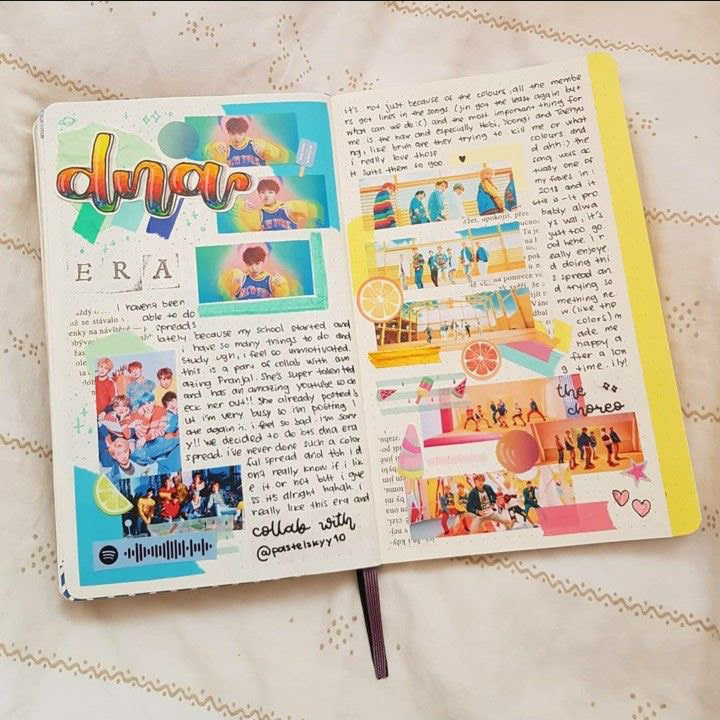 dna
ERA
I haven't been
able to do
spreads
lately, because my school started and
i have so many things to do and
study ugh, i feel so unmotivated.
this is a part of collab with am
azing Pranjal. She's super talented
and has an amazing youtube so ch
ecc her out!! She already posted b
ut i'm very busy so i'm posting l
ate again :(. i feel so bad. i'm sorr
y!! we decided to do bts dna era
spread. i've never done such a color
ful spread and tbh i d
on't really know if i lik
e it or not but i gue
ss it's alright hahah. i
really like this era and
collab with
@pastelskyy10
it's not just because of the colours, all the membe
rs got lines in the songs (jin got the least again but
what can we do :() and the most important thing for
me is the hair and especially Hobi, Yoongi and Taehyu
ng, like bruh are they trying to kill me or what
i really love those colours and
it suits them so goo d ahh :) the
song was ac
tually one of
my faves in
2018 and it
still is - it pro
bably alwa
ys will, it's
just too go
od hehe. I r
really enjoye
d doing thi
s spread an
d trying so
mething ne
w (like the
colors)
made me
happy a
fter a lon
g time. ily!
the
choreo
každý
ož se stávalo
enky na návštěvě
upokojit, přes
učno,
na ponovce